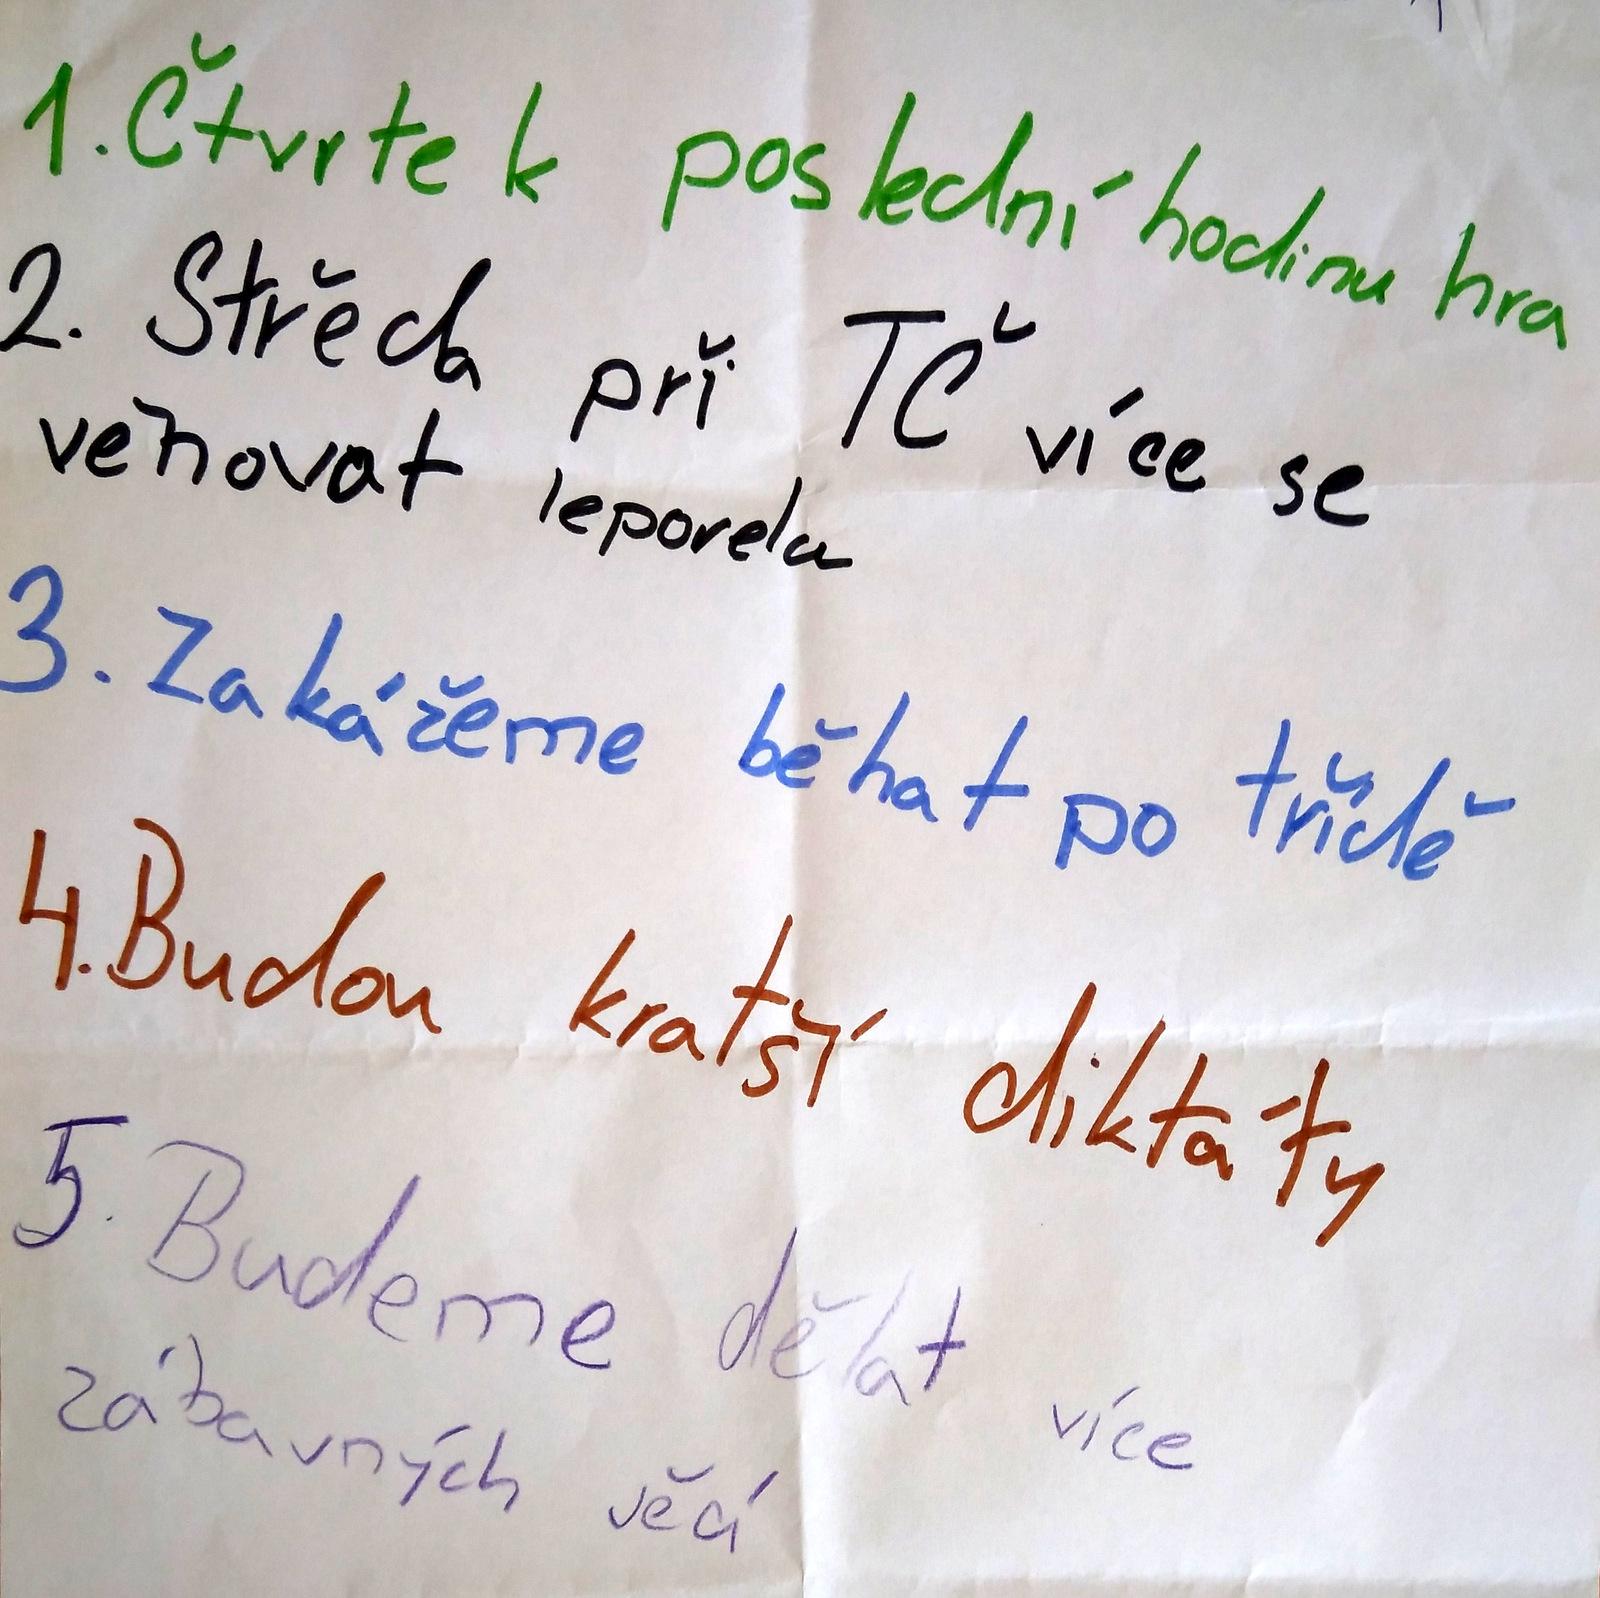 1. Čtvrtek poslední hodinu hra
2. Střěda při TČ více se
veňovat leporelu
3. Zakážeme běhat po třídě
4. Budou kratší diktáty
5. Budeme dělat více
zábavných věcí